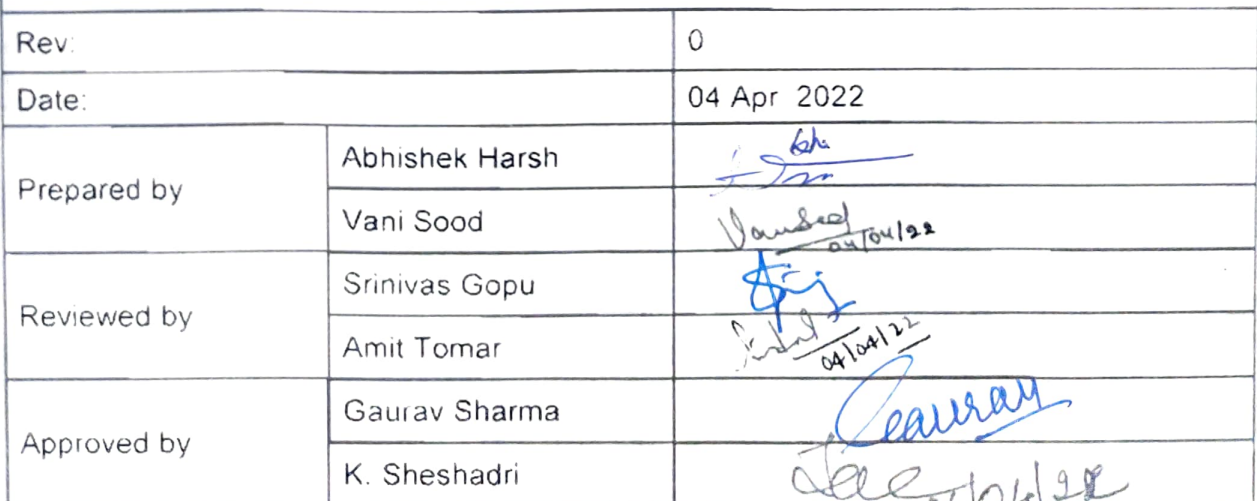 Rev: 0
Date: 04 Apr 2022
Prepared by
Abhishek Harsh
Vani Sood VaniSood
04/04/22
Reviewed by
Srinivas Gopu
Amit Tomar
04/04/22
Approved by
Gaurav Sharma Gaurav
K. Sheshadri